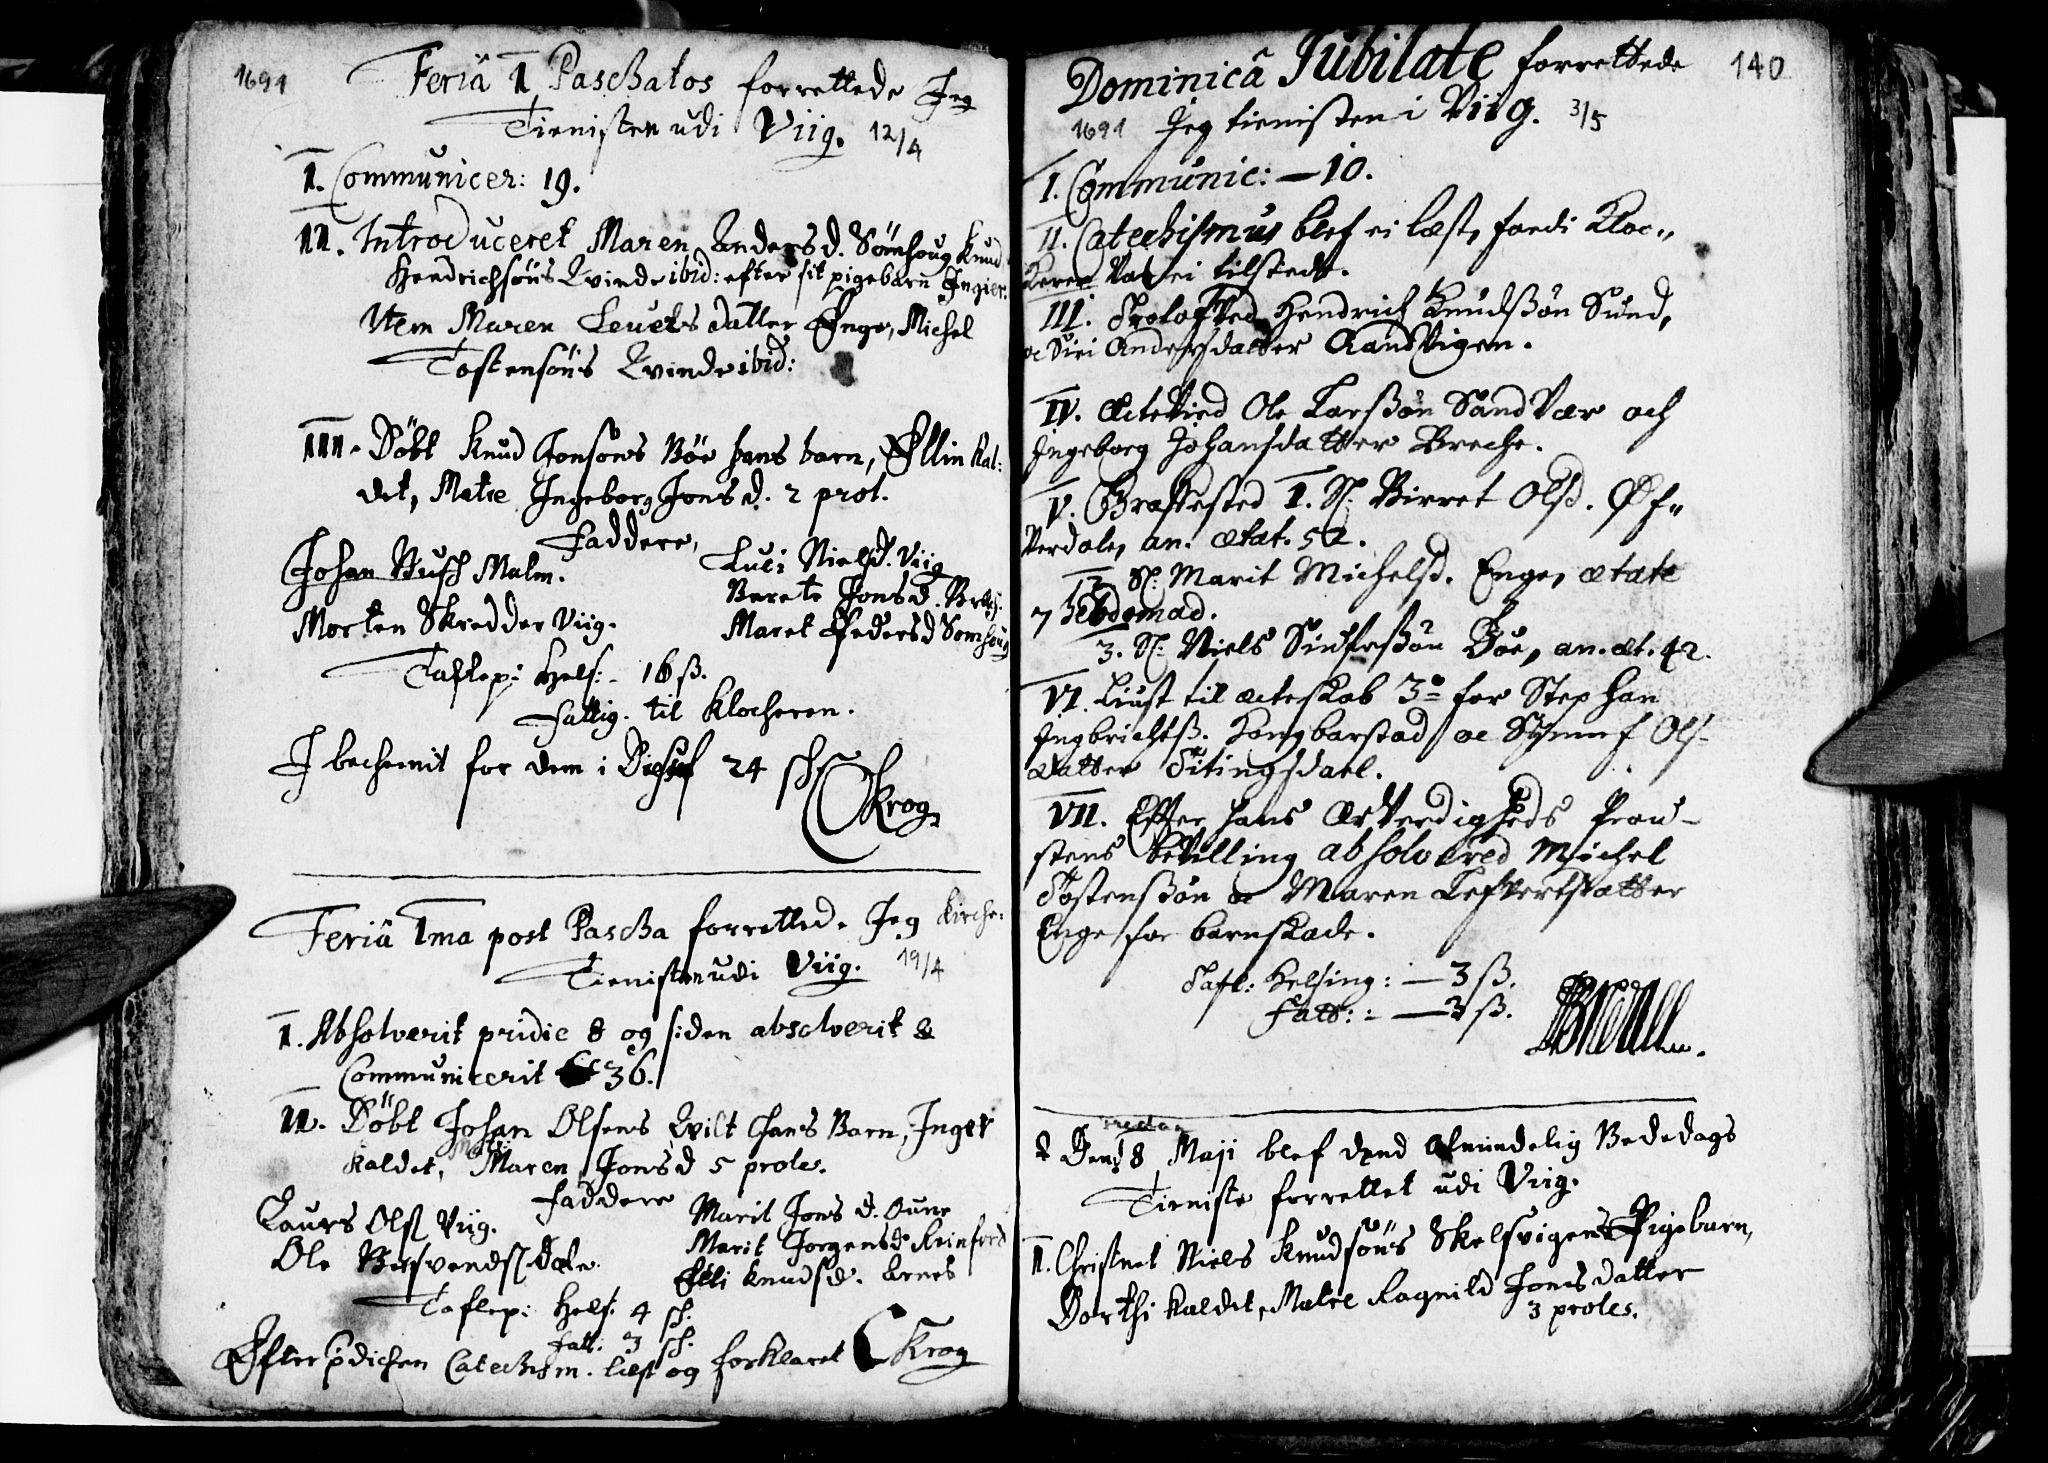 1691
Feriâ 1 Paschatos forrettede Jeg
Tienisten udi Viig. 12/4
I. Communicer: 19.
II. Introduceret Maren Anders d. Sømhoug Knud
Hendrichsøns Qvinde ibid: efter sit pigebarn Ingier.
Item Maren Leuets datter Enge, Michel
Tostensøns Qvinde ibid:
III. Döbt Knud Jonsøns Böe hans barn, Ellin kal:
det, Matre Ingeborg Jons d. 2 prol.
Faddere,
Johan Busch Malm.
Morten Skredder Viig.
Luci Nielsd. Viig
Berete Jons d.
Maret Peders d Somhoug
Taflep: Hels: - 16 ß.
Fattig. til Klocheren.
J bechemit for dem i 24 sch
CKrog
Feriâ 1ma post Pascha forretted. Jeg Kirche:
Tienisten udi Viig. 19/4
I. Absolverit pridie 8 og siden absolverit &
Communicerit 36.
II. Döbt Johan Olsens Qvilt hans Barn, Inger
kaldet, Matri Maren Jons d 5 proles.
Faddere
Laurs Ols Viig.
Ole Dale.
Marit Jons d. Oune
Marit Jorgensd. Reinfeed
Elli Knudsd. Arnes
Taflep: Hels: 4 sch.
Fatt: 3 sch.
Efter Catechism. læst og forklaret CKrog
140
Dominicâ Jubilate forrettede
1691 Jeg tienisten i Viig. 3/5
I. Communic: — 10.
II. Catechismus blef ei læst, fordi Kloc„
keren var ei tilstede.
III. Trolofved Hendrich Knudßøn Sund,
oc Siri Andersdatter Aandvigen.
IV. Ectevied Ole Larßøn Sandvær och
Ingeborg Johansdatter Breche.
V. Græffested 1. Sl: Birret Olsd. Øf„
verdale, an. ætat. 52.
2 Sl: Marit Michelsd. Enge, ætate
7 hebdomad.
3. Sl: Niels Böe, an. æt. 42.
VI. Liust til ecteskab 3º for Stephan
Ingbrichtß. Kongbarstad oc Ols-
datter Sitingsdael.
VII. Efter hans Ærverdigheds Prou-
stens bevilling absolvered Michel
Tostenßøn oc Maren Lefvertsdatter
Enge for barnskade.
Tafl: Helsing: — 3 ß.
Fatt: : — 3 ß.
fredag
Dend 8 Maji blef dend Almindelig Bededags
Tieniste forrettet udi Viig.
I. Christnet Niels Knudsøns Skelsvigens Pigebarn,
Dorthi kaldet, Matre Ragnild Jonsdatter
3 proles.